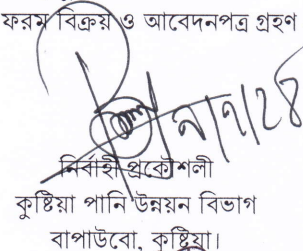 ফরম বিক্রয় ও আবেদনপত্র গ্রহণ
নির্বাহী প্রকৌশলী
কুষ্টিয়া পানি উন্নয়ন বিভাগ
বাপাউবো, কুষ্টিয়া।